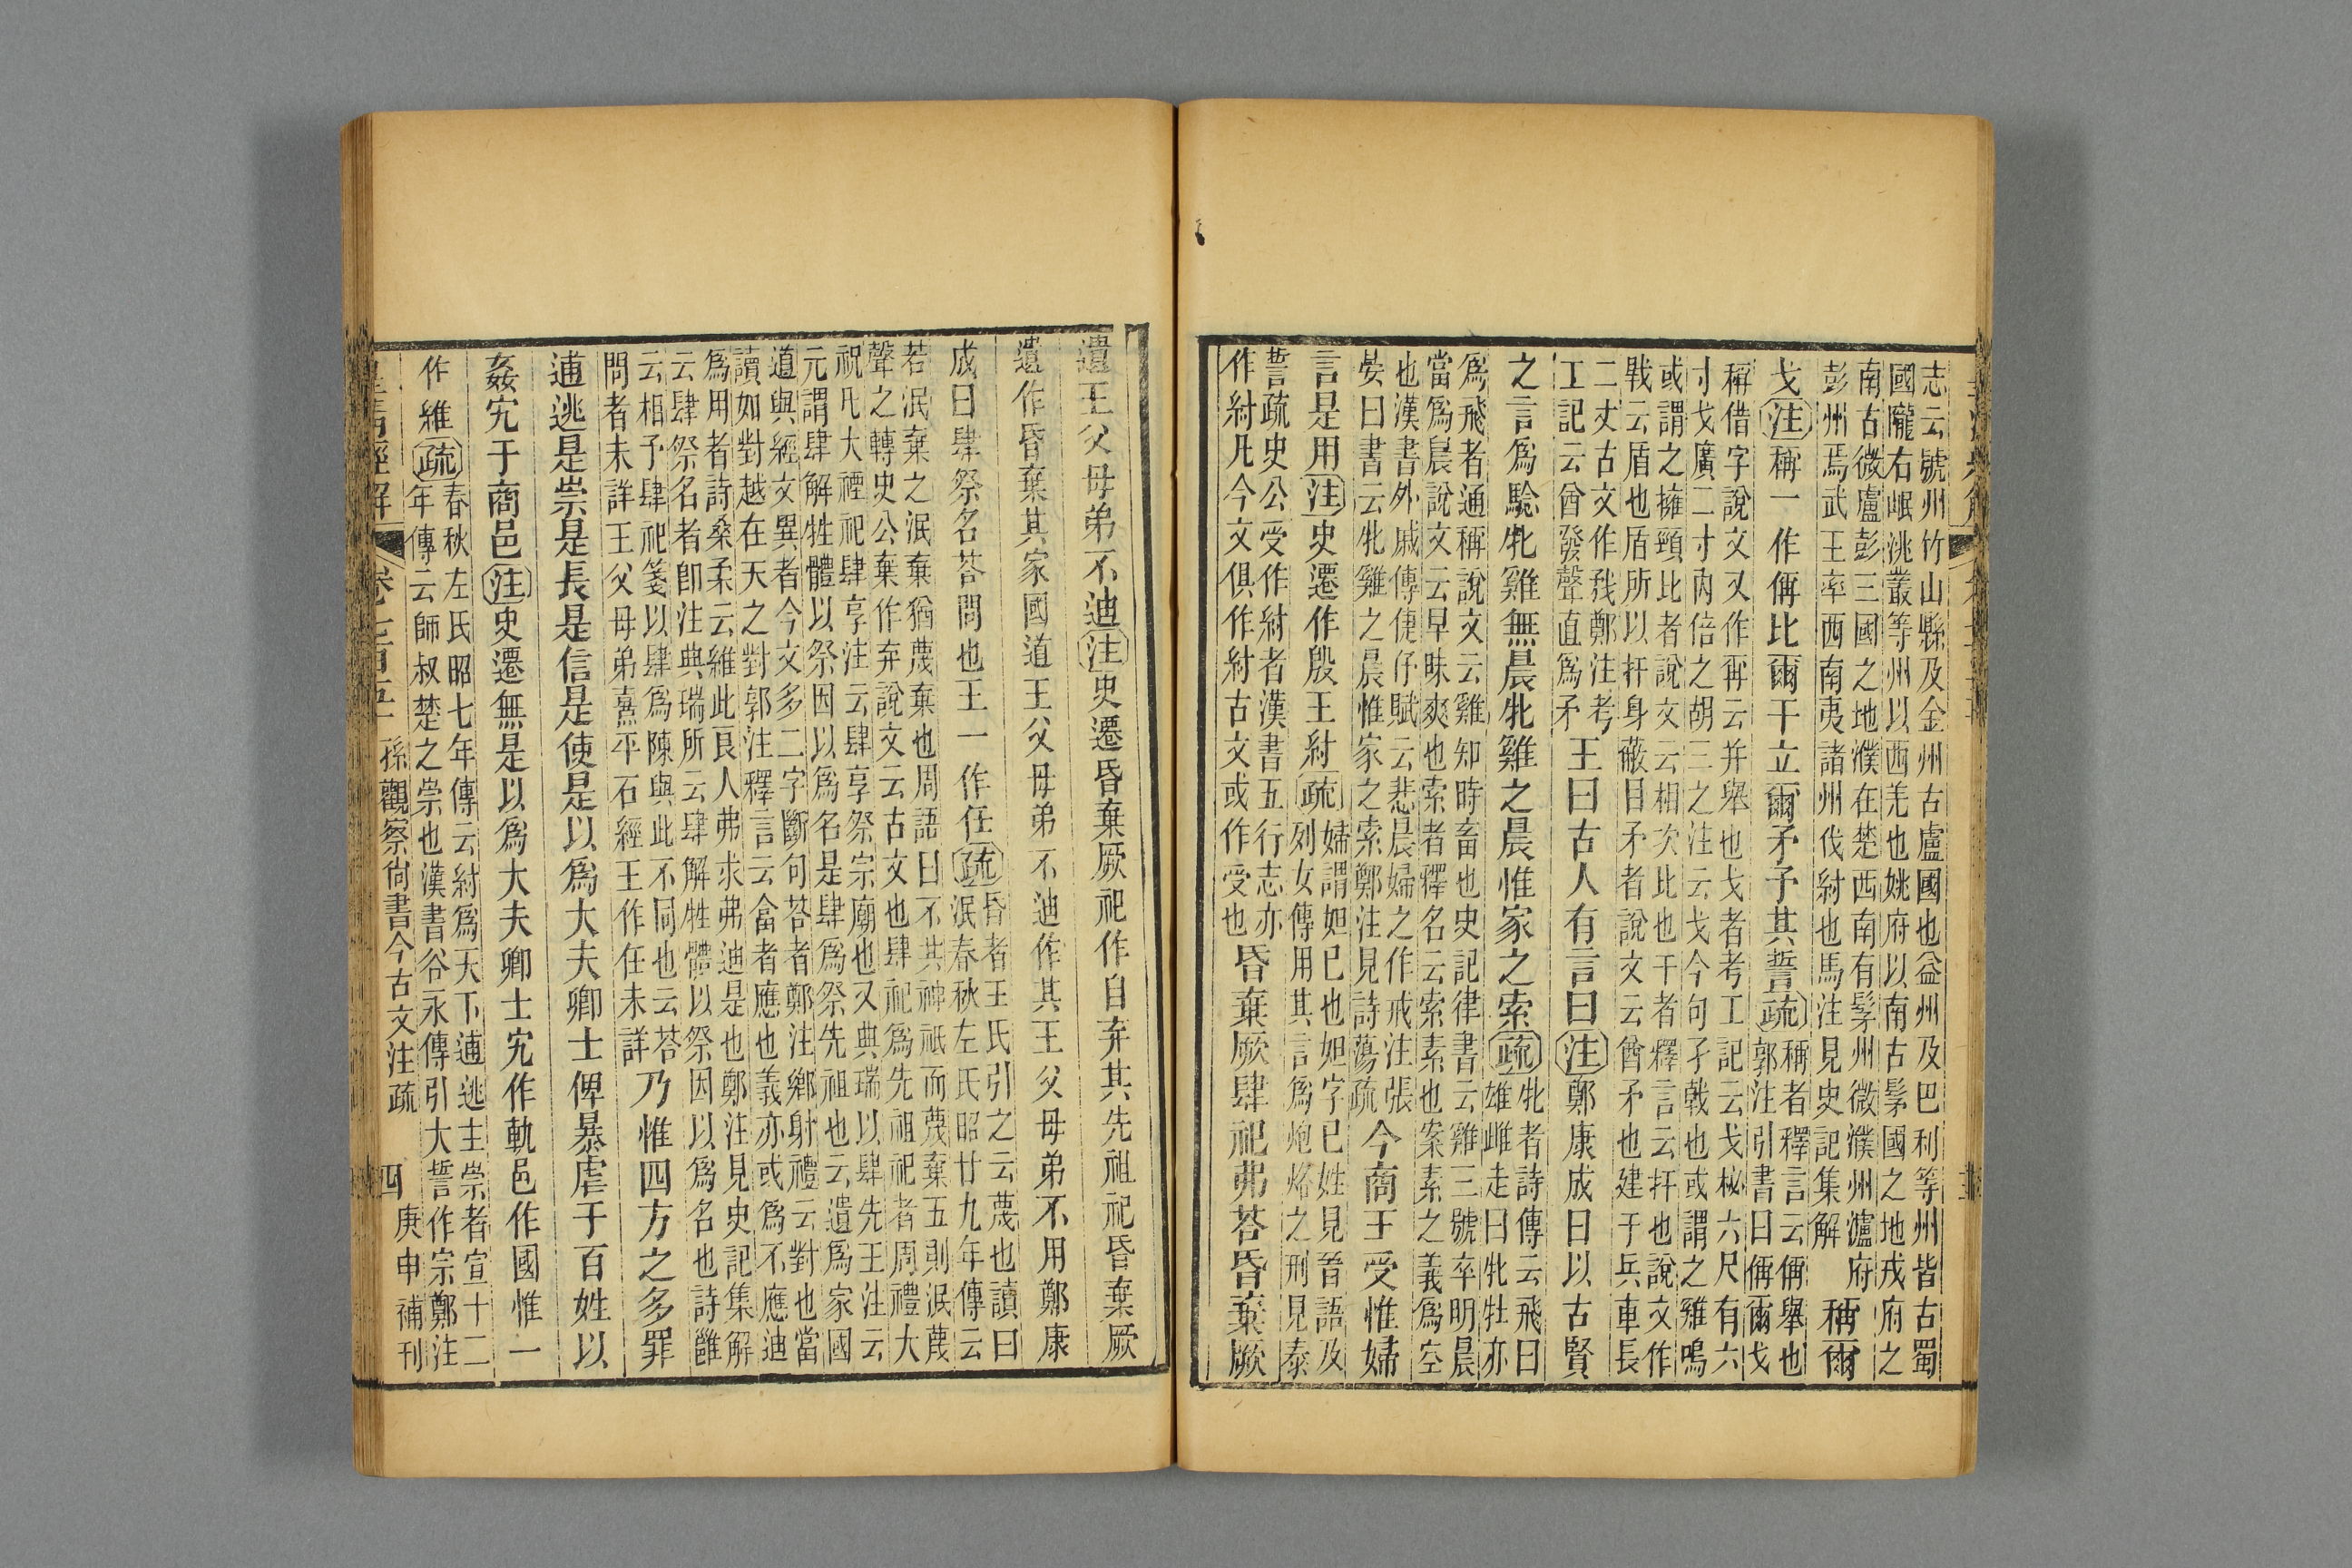 志云號州竹山縣及金州古盧國也益州及巴利等州皆古蜀
國隴右岷洮叢等州以西羌也姚府以南古髳國之地戎府之
南古微盧彭三國之地濮在楚西南有髳州微濮州瀘府
彭州焉武王率西南夷諸州伐紂也馬注見史記集解
稱爾
戈注稱一作偁比爾干立爾矛予其誓疏
稱者釋言云偁舉也
郭注引書曰偁爾戈
稱借字說文又作爯云幷舉也戈者考工記云戈柲六尺有六
寸戈廣二寸內倍之胡三之注云戈今句孑戟也或謂之雞鳴
或謂之擁頸比者說文云相次比也干者釋言云扞也說文作
戰云盾也盾所以扞身蔽目矛者說文云酋矛也建于兵車長
二丈古文作𢦧鄭注考
工記云酋發聲直爲矛
王曰古人有言曰注鄭康成曰以古賢
之言爲驗牝雞無晨牝雞之晨惟家之索疏
牝者詩傳云飛曰
雄雌走曰牝牡亦
爲飛者通稱說文云雞知時畜也史記律書云雞三號卒明晨
當爲晨說文云早昧爽也索者釋名云索素也案素之義爲空
也漢書外戚傳倢伃賦云悲晨婦之作戒注張
晏曰書云牝雞之晨惟家之索鄭注見詩蕩疏
今商王受惟婦
言是用注史遷作殷王紂疏
婦謂妲己也妲字己姓見晉語及
列女傳用其言爲炮烙之刑見泰
誓疏史公受作紂者漢書五行志亦
作紂凡今文俱作紂古文或作受也
昏棄厥肆祀弗荅昏棄厥
遺王父母弟不迪注史遷昏棄厥祀作自弃其先祖祀昏棄厥
遺作昏棄其家國遺王父母弟不迪作其王父母弟不用鄭康
成曰肆祭名荅問也王一作任疏
昏者王氏引之云蔑也讀曰
泯春秋左氏昭廿九年傳云
若泯棄之泯棄猶蔑棄也周語曰不共神祇而蔑棄五則泯蔑
聲之轉史公棄作弃說文云古文也肆祀爲先祖祀者周禮大
祝凡大禋祀肆享注云肆享祭宗廟也又典瑞以肆先王注云
元謂肆解牲體以祭因以爲名是肆爲祭先祖也云遺爲家國
道與經文異者今文多二字斷句荅者鄭注鄉射禮云對也當
讀如對越在天之對郭注釋言云畣者應也義亦或爲不應迪
爲用者詩桑柔云維此良人弗求弗迪是也鄭注見史記集解
云肆祭名者卽注典瑞所云肆解牲體以祭因以爲名也詩雝
云相予肆祀箋以肆爲陳與此不同也云荅
問者未詳王父母弟熹平石經王作任未詳
乃惟四方之多罪
逋逃是崇是長是信是使是以爲大夫卿士俾暴虐于百姓以
姦宄于商邑注史遷無是以爲大夫卿士宄作軌邑作國惟一
作維疏
春秋左氏昭七年傳云紂爲天下逋逃主崇者宣十二
年傳云師叔楚之崇也漢書谷永傳引大誓作宗鄭注
皇清經解 卷七百五 孫觀察尙書今古文注疏 四 庚申補刊